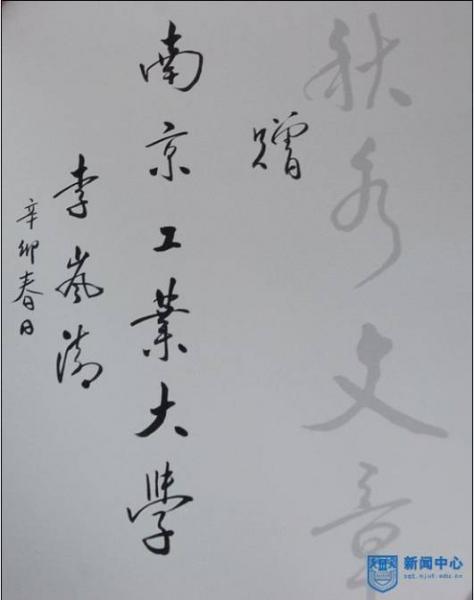 秋水文章
贈
南京工業大學
李嵐清
辛卯春日
新闻中心
zgt.njut.edu.cn